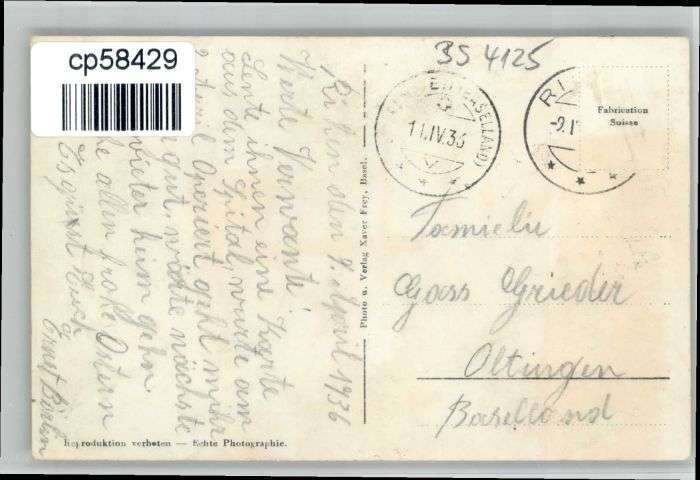 cp58429
BS 4125
Fabrication
Suisse
(BASELLAND)
11.IV.36
RI
-9.I
Riehen den 9. April 1936
Werte Verwante!
Sente ihnen eine Karte
aus dem Spital, wurde am
2 April Operiert geht mihr
gut, würte nächste
wieter heim gehn.
allen frohe Ostern
Es grüsst Euch
Ernst Börlin
Photo u. Verlag Xaver Frey, Basel.
Familie
Gass Grieder
Oltingen
Baselland
Reproduktion verboten — Echte Photographie.